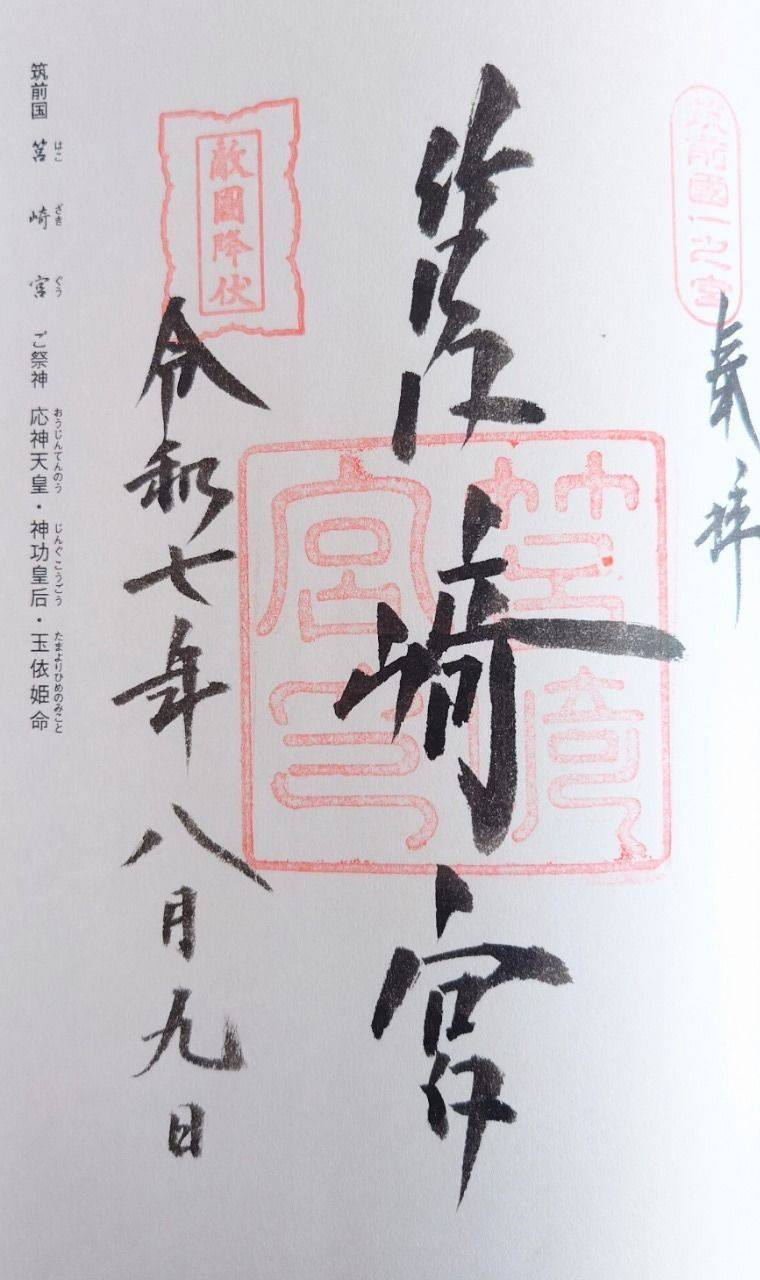 筑前國一之宮
奉拝
筥崎宮
筥崎宮印
敵國降伏
令和七年八月九日
筑前国 筥崎宮 ご祭神 応神天皇・神功皇后・玉依姫命
はこ ざき ぐう おうじんてんのう じんぐこうごう たまよりひめのみこと